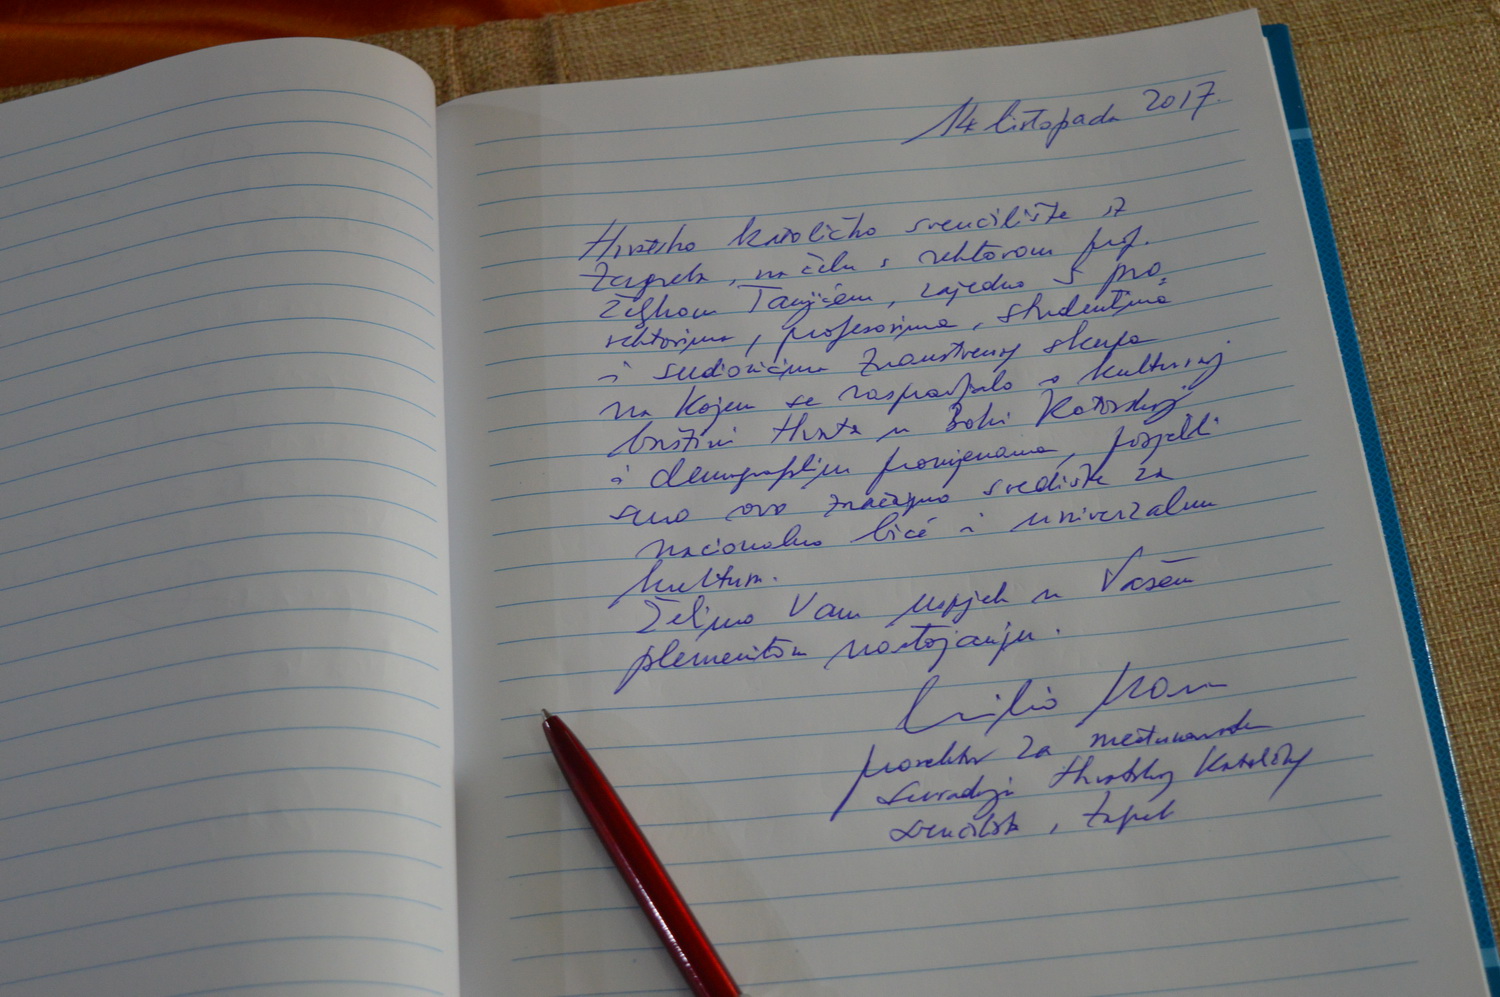 14 listopada 2017.
Hrvatsko katoličko sveučilište iz
Zagreba, na čelu s rektorom prof.
Željkom Tanjićem, zajedno s pro-
rektorima, profesorima, studentima
i sudionicima znanstvenog skupa
na kojem se raspravljalo o kulturnoj
baštini Hrvata u Boki Kotorskoj
i demografskim promjenama, posjetili
smo ovo značajno središte za
nacionalno biće i univerzalnu
kulturu.
Želimo Vam uspjeh u Vašem
plemenitom nastojanju.
Emilio
prorektor za međunarodnu
suradnju Hrvatskog katoličkog
sveučilišta, Zagreb